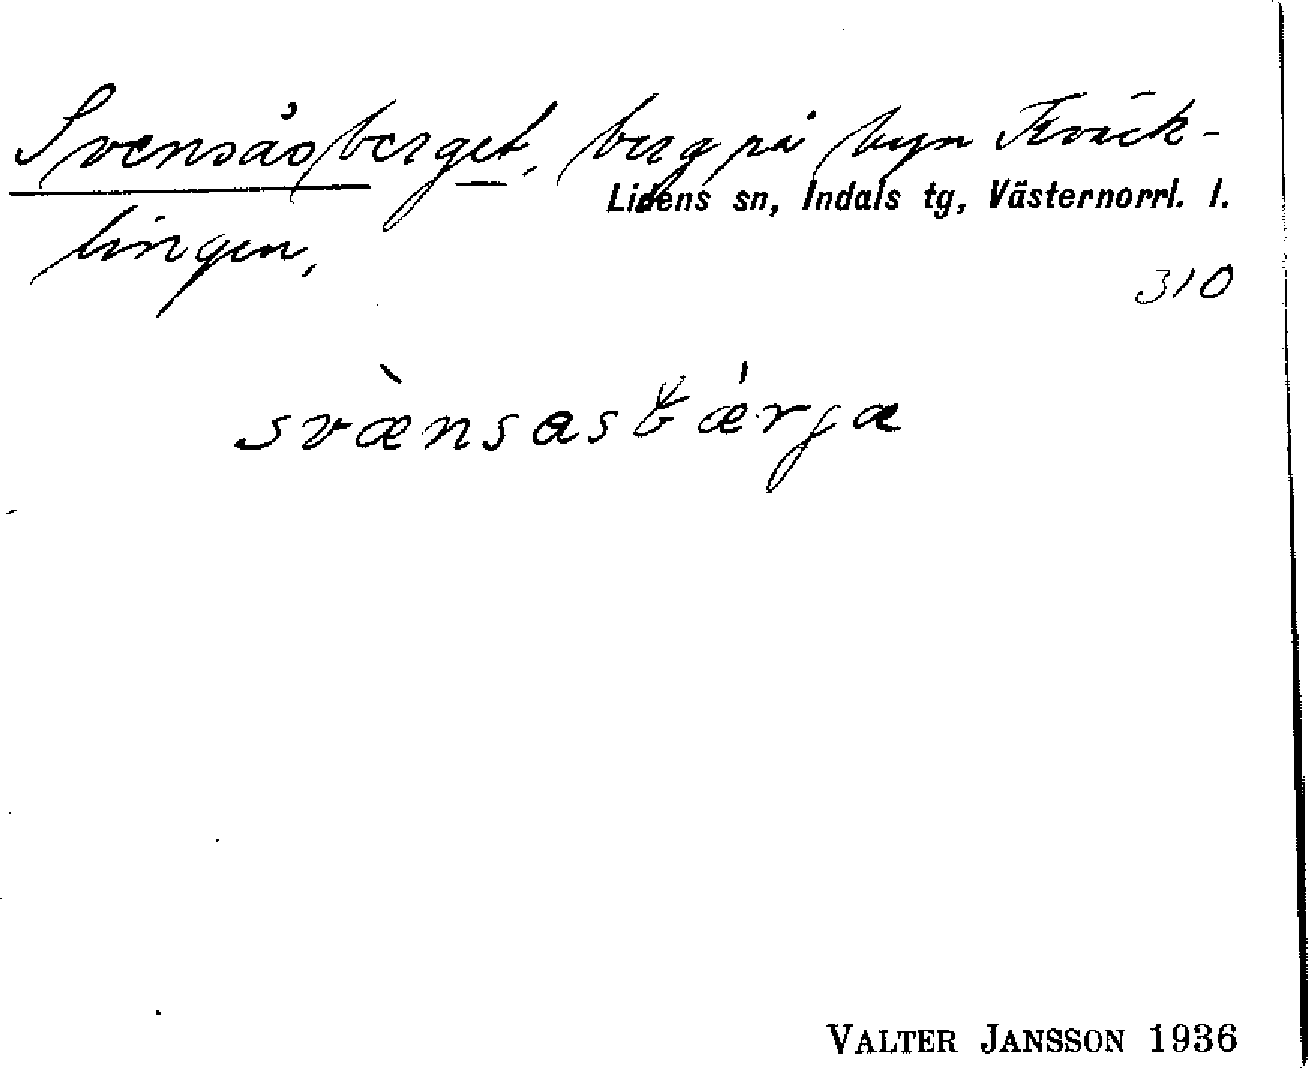 Svensåsberget, berg på byn Kväck-
Lidens sn, Indals tg, Västernorrl. l.
lingen,
310
svæ̀nsasbǽrja
VALTER JANSSON 1936